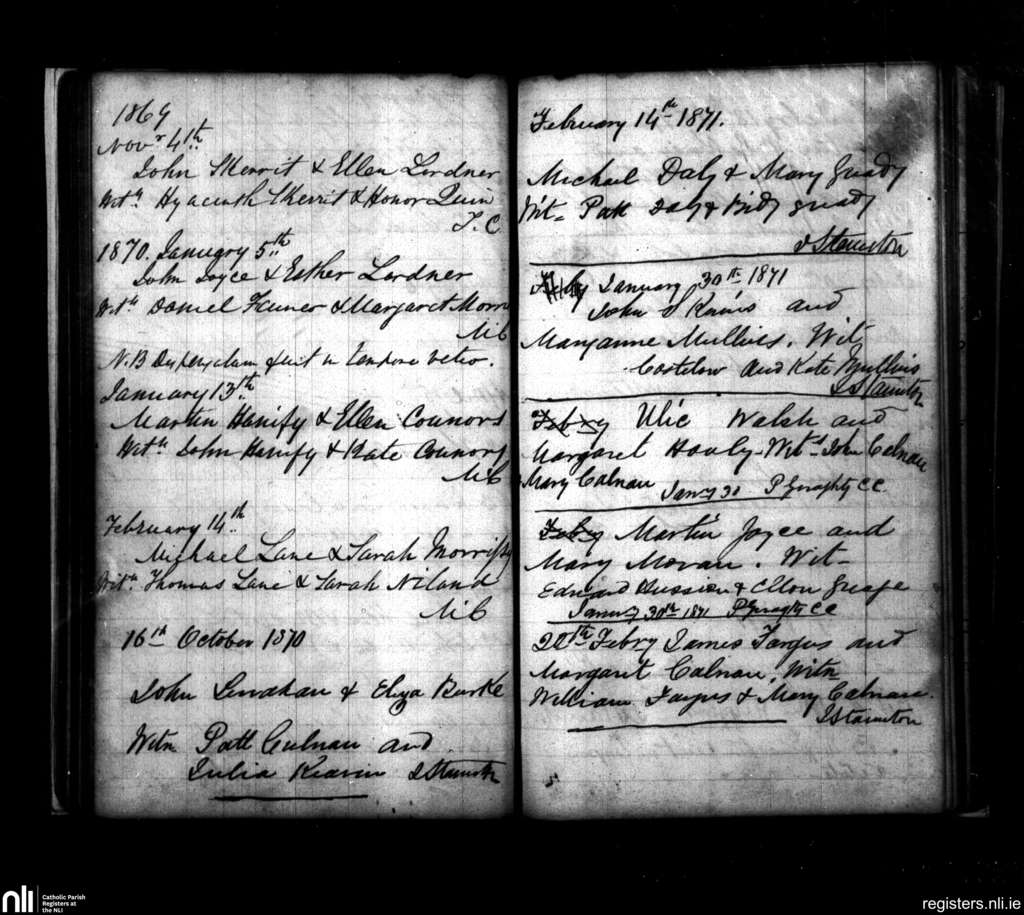 1869
Novr 4th
John Skerrit & Ellen Lardner
Witn. Hyacinth Skerrit & Honor Quin
T. C
1870. January 5th
John Joyce & Esther Lardner
Witn Daniel & Margaret Morris
MC
N.B in tempore vetito.
January 13th
Martin Hanify & Ellen Connors
Witn John Hanify & Kate Connors
MC
February 14th
Michael Lane & Sarah Morrissy
Witn. Thomas Lane & Sarah Niland
MC
16th October 1870
John Linahan & Eliza Burke
Witn Patt Culnan and
Julia Kearin J Staunton
February 14th 1871.
Michael Daly & Mary Grady
Wit- Patt Daly & Bidy Grady
J Staunton
Feby January 30th 1871
John S Kains and
Maryanne Mullins. Wit
Costelow and Kate Mullins
J Staunton
Febry Ulic Walsh and
Margaret Hauly - Wits John Calnan
Mary Calnan Jany 30 P Geraghty CC
Febry Martin Joyce and
Mary Moran. Wit-
Edward Hussion & Ellon Grape
January 30th 1871 P Geraghty CC
20th Febry James Fargus and
Margaret Calnan, Witn
William Fargus & Mary Calnan.
J Staunton
nli
Catholic Parish
Registers at
the NLI
registers.nli.ie